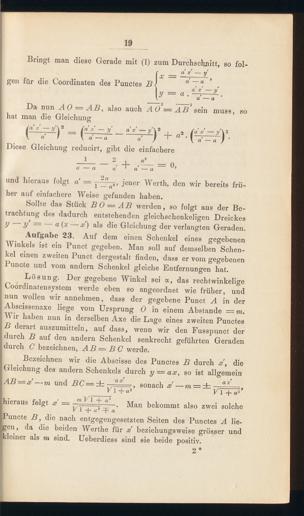 19
Bringt man diese Gerade mit (I) zum Durchschnitt, so fol-
gen für die Coordinaten des Punctes B { x = (a′x′ − y′)/(a′ − a), y = a · (a′x′ − y′)/(a′ − a).
Da nun AO = AB, also auch AO² = AB² sein muss, so
hat man die Gleichung
((a′x′ − y′)/a′)² = ((a′x′ − y′)/(a′ − a) − (a′x′ − y′)/a′)² + a² · ((a′x′ − y′)/(a′ − a))².
Diese Gleichung reducirt, gibt die einfachere
1/(a′ − a) − 2/a′ + a²/(a′ − a) = 0,
und hieraus folgt a′ = 2a/(1 − a²), jener Werth, den wir bereits frü-
her auf einfachere Weise gefunden haben.
Sollte das Stück BO = AB werden, so folgt aus der Be-
trachtung des dadurch entstehenden gleichschenkeligen Dreickes
y − y′ = − a (x − x′) als die Gleichung der verlangten Geraden.
Aufgabe 23. Auf dem einen Schenkel eines gegebenen
Winkels ist ein Punct gegeben. Man soll auf demselben Schen-
kel einen zweiten Punct dergestalt finden, dass er vom gegebenen
Puncte und vom andern Schenkel gleiche Entfernungen hat.
Lösung. Der gegebene Winkel sei x, das rechtwinkelige
Coordinatensystem werde eben so angeordnet wie früher, und
nun wollen wir annehmen, dass der gegebene Punct A in der
Abscissenaxe liege vom Ursprung O in einem Abstande = m.
Wir haben nun in derselben Axe die Lage eines zweiten Punctes
B derart auszumitteln, auf dass, wenn wir den Fusspunct der
durch B auf den andern Schenkel senkrecht geführten Geraden
durch C bezeichnen, AB = BC werde.
Bezeichnen wir die Abscisse des Punctes B durch x′, die
Gleichung des andern Schenkels durch y = ax, so ist allgemein
AB = x′ − m und BC = ± ax′/√(1 + a²), sonach x′ − m = ± ax′/√(1 + a²),
hieraus folgt x′ = m√(1 + a²)/(√(1 + a²) ∓ a). Man bekommt also zwei solche
Puncte B, die nach entgegengesetzten Seiten des Punctes A lie-
gen, da die beiden Werthe für x′ beziehungsweise grösser und
kleiner als m sind. Ueberdiess sind sie beide positiv.
2*